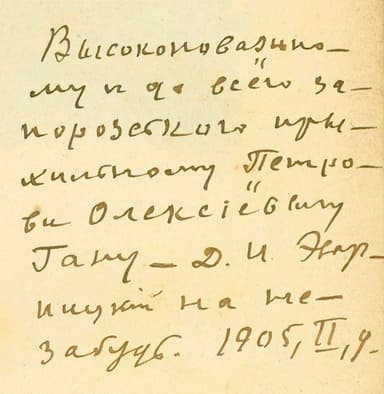 Высокоповажно-
му и до всёго за-
порозського пры-
хильному Петро-
ви Олексіёвичу
Гану – Д. И. Эвар-
ницкій на не-
забудь. 1905, II, 9.